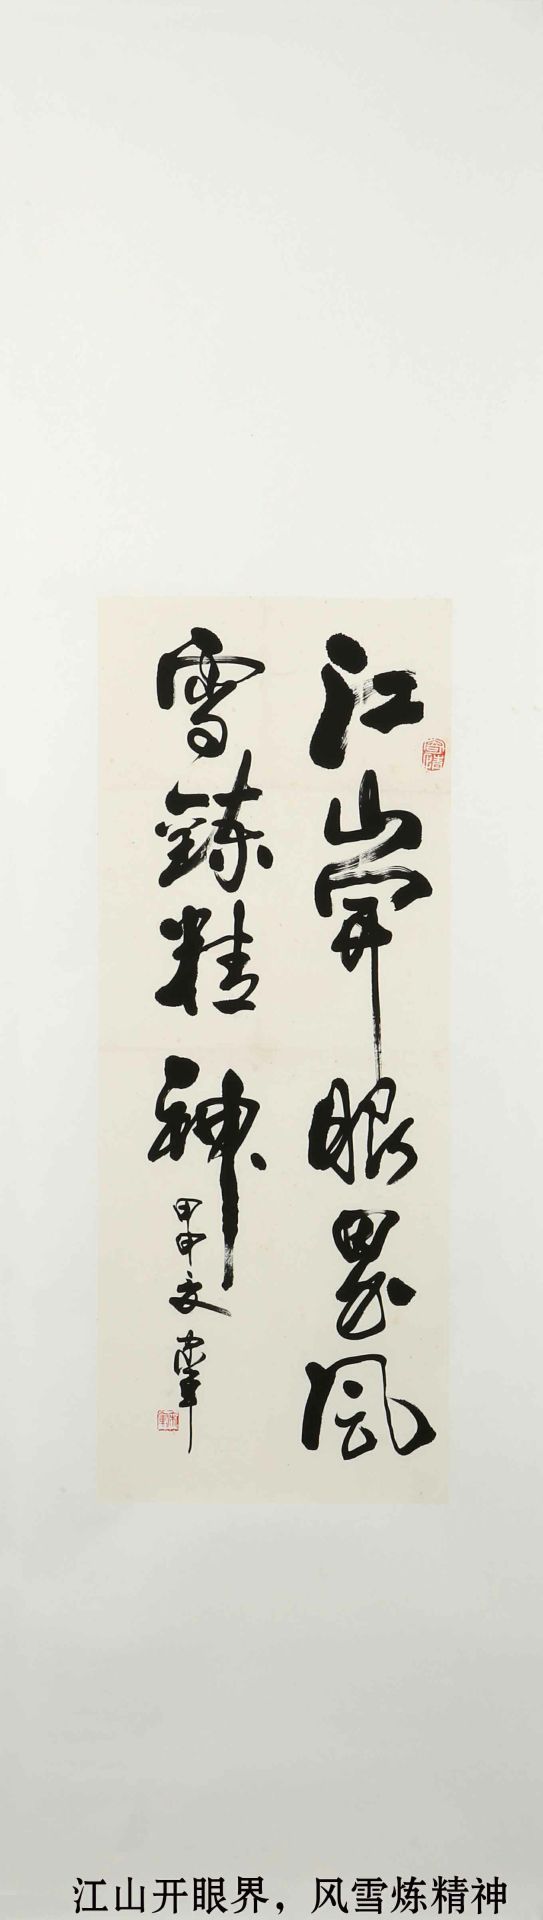 江山開眼界風
雪鍊精神
甲申夏
江山开眼界，风雪炼精神